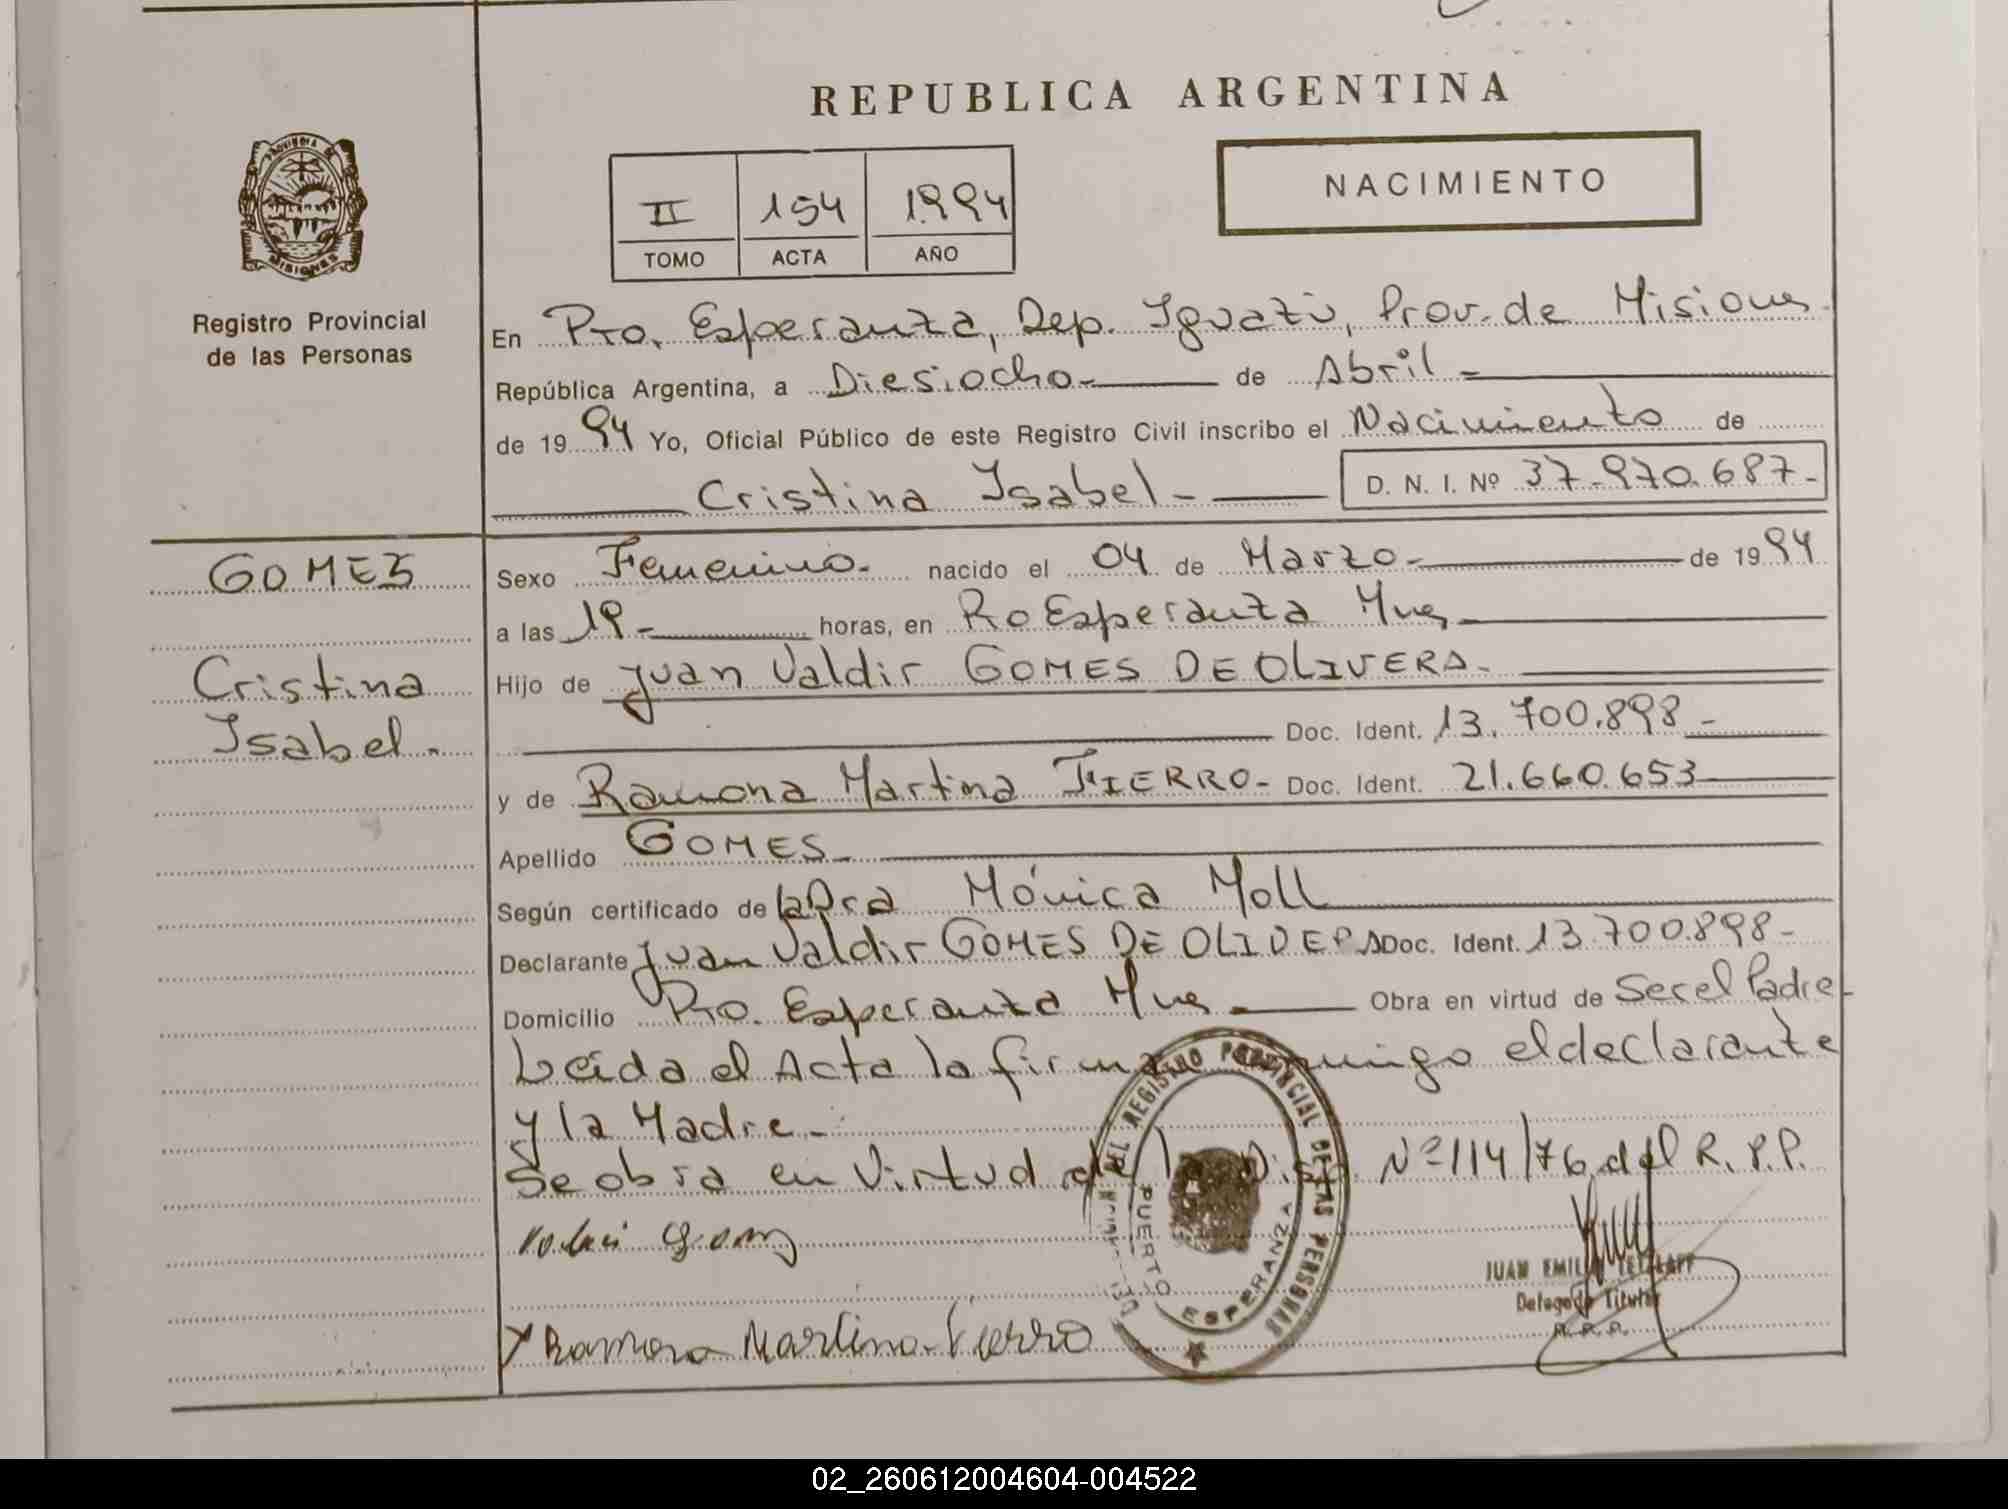 REPUBLICA ARGENTINA
NACIMIENTO
II 154 1994
TOMO ACTA AÑO
PROVINCIA DE
MISIONES
Registro Provincial
de las Personas
En Pto. Esperanza, Dep. Iguazú, Prov. de Misiones
República Argentina, a Diesiocho.- de Abril.-
de 1994 Yo, Oficial Público de este Registro Civil inscribo el Nacimiento de
Cristina Isabel.- D. N. I. Nº 37.970.687.-
GOMES
Cristina
Isabel.-
Sexo Femenino.- nacido el 04 de Marzo.- de 1994
a las 19.- horas, en Pto Esperanza Mnes.-
Hijo de Juan Valdir GOMES DE OLIVERA.-
Doc. Ident. 13.700.898.-
y de Ramona Martina FIERRO.- Doc. Ident. 21.660.653
Apellido GOMES.-
Según certificado de la Dra Mónica Moll
Declarante Juan Valdir GOMES DE OLIVERA Doc. Ident. 13.700.898.-
Domicilio Pto. Esperanza Mnes.- Obra en virtud de Ser el Padre.-
Leida el Acta la firma conmigo el declarante
y la Madre.-
Se obra en Virtud de la Disp. Nº 114/76 del R.P.P.
DEL REGISTRO PROVINCIAL DE LAS PERSONAS
PUERTO ESPERANZA
JUAN EMILIO
Delegado Titular
R.P.P.
Ramona Martina Fierro
02_260612004604-004522